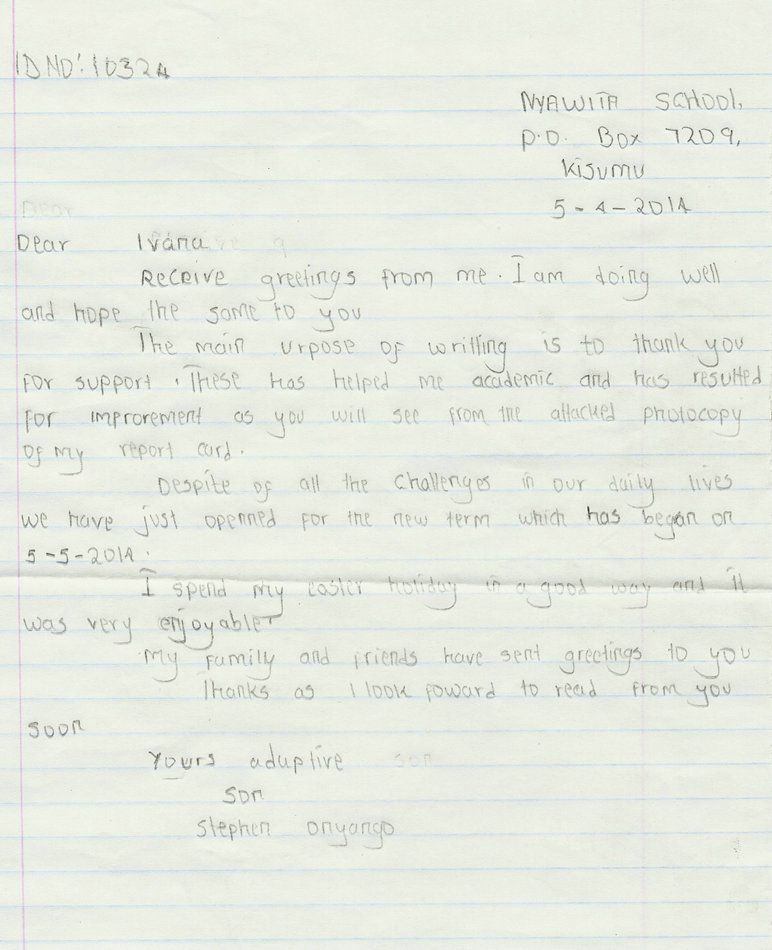 ID NO: 10324
NYAWITA SCHOOL,
P.O. Box 7209,
Kisumu
5-4-2014
Dear
Dear Ivana
Receive greetings from me. I am doing well
and hope the same to you
The main urpose of writting is to thank you
for support. These has helped me academic and has resulted
for improrement as you will see from the attacked photocopy
of my report card.
Despite of all the challenges in our daily lives
we have just openned for the new term which has began on
5-5-2014.
I spend my easter holiday in a good way and it
was very enjoyable
my family and friends have sent greetings to you
Thanks as I look foward to read from you
soon
Yours aduptive son
son
Stephen onyango